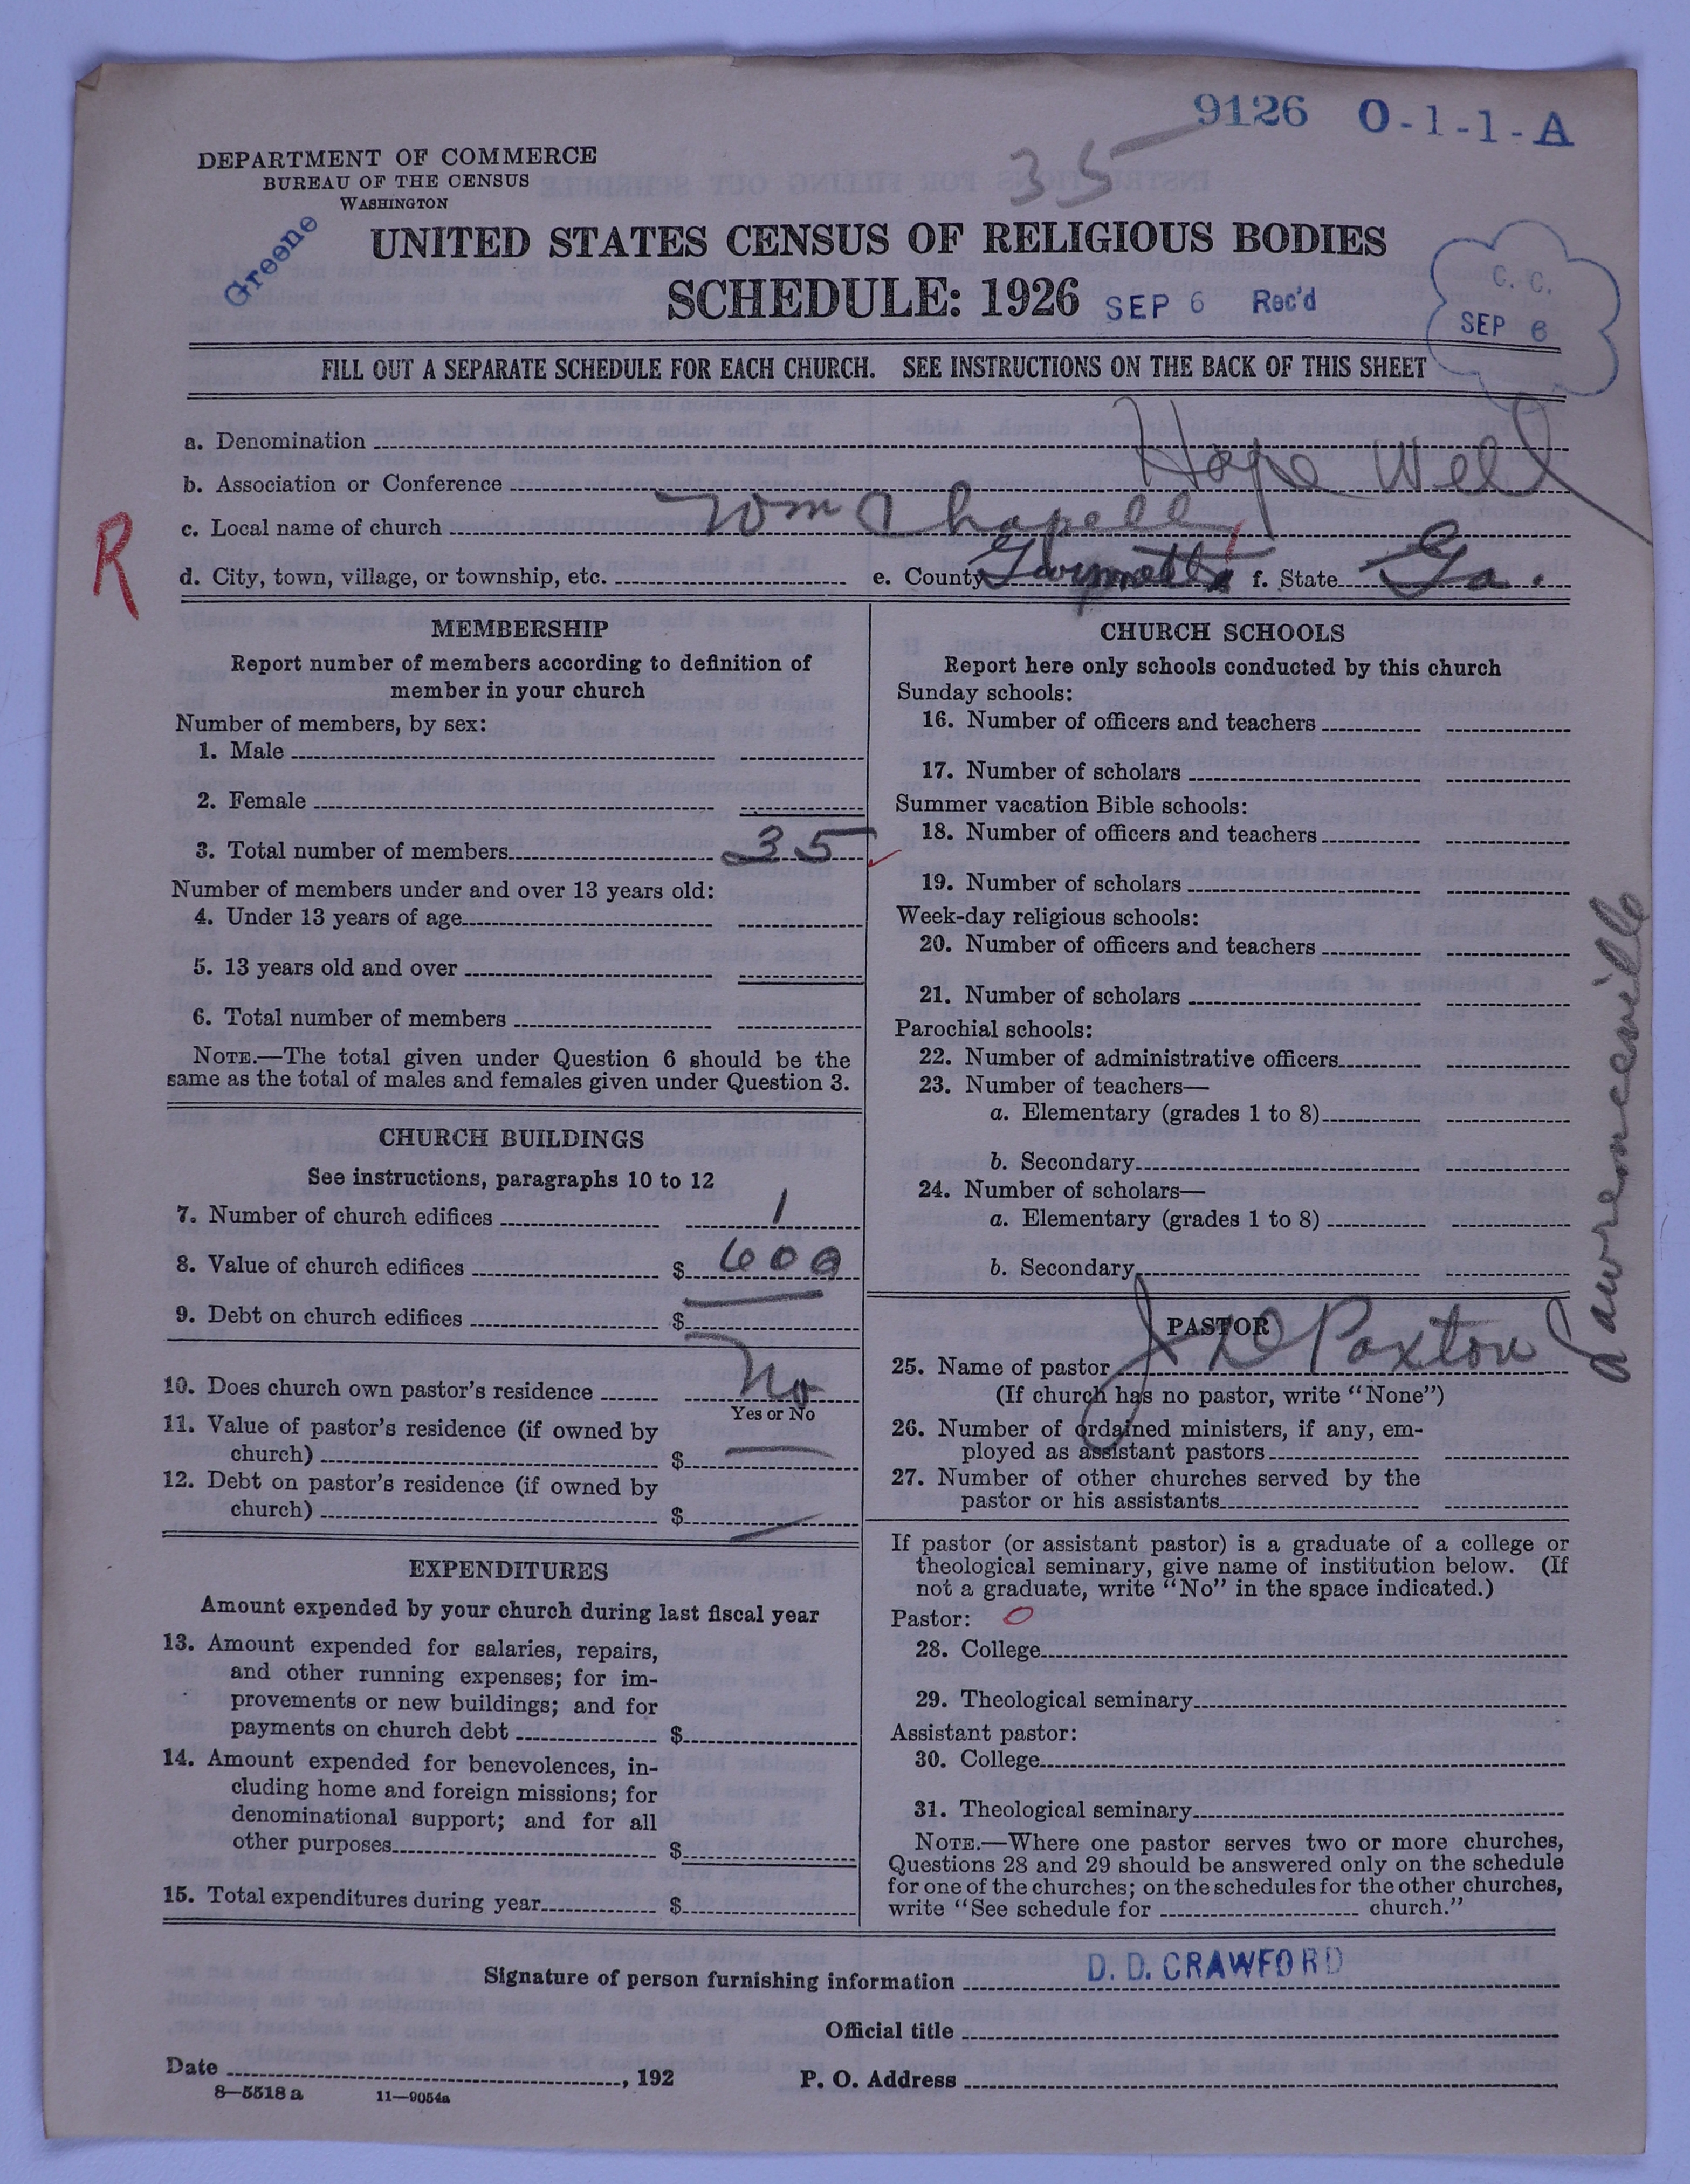 9126 O-1-1-A
35
DEPARTMENT OF COMMERCE
BUREAU OF THE CENSUS
WASHINGTON
Greene
UNITED STATES CENSUS OF RELIGIOUS BODIES
SCHEDULE: 1926 SEP 6 Rec'd
C. C.
SEP 6
FILL OUT A SEPARATE SCHEDULE FOR EACH CHURCH. SEE INSTRUCTIONS ON THE BACK OF THIS SHEET
a. Denomination
b. Association or Conference Hope Well
c. Local name of church Tom Chapell
R
d. City, town, village, or township, etc. e. County Gwinnett f. State Ga.
MEMBERSHIP
Report number of members according to definition of
member in your church
Number of members, by sex:
1. Male
2. Female
3. Total number of members 35
Number of members under and over 13 years old:
4. Under 13 years of age
5. 13 years old and over
6. Total number of members
NOTE.—The total given under Question 6 should be the
same as the total of males and females given under Question 3.
CHURCH BUILDINGS
See instructions, paragraphs 10 to 12
7. Number of church edifices 1
8. Value of church edifices $ 600
9. Debt on church edifices $
10. Does church own pastor's residence No
Yes or No
11. Value of pastor's residence (if owned by
church) $
12. Debt on pastor's residence (if owned by
church) $
EXPENDITURES
Amount expended by your church during last fiscal year
13. Amount expended for salaries, repairs,
and other running expenses; for im-
provements or new buildings; and for
payments on church debt $
14. Amount expended for benevolences, in-
cluding home and foreign missions; for
denominational support; and for all
other purposes $
15. Total expenditures during year $
CHURCH SCHOOLS
Report here only schools conducted by this church
Sunday schools:
16. Number of officers and teachers
17. Number of scholars
Summer vacation Bible schools:
18. Number of officers and teachers
19. Number of scholars
Week-day religious schools:
20. Number of officers and teachers
21. Number of scholars
Parochial schools:
22. Number of administrative officers
23. Number of teachers—
a. Elementary (grades 1 to 8)
b. Secondary
24. Number of scholars—
a. Elementary (grades 1 to 8)
b. Secondary
PASTOR
25. Name of pastor J D Paxton
Lawrenceville
(If church has no pastor, write "None")
26. Number of ordained ministers, if any, em-
ployed as assistant pastors
27. Number of other churches served by the
pastor or his assistants
If pastor (or assistant pastor) is a graduate of a college or
theological seminary, give name of institution below. (If
not a graduate, write "No" in the space indicated.)
Pastor: O
28. College
29. Theological seminary
Assistant pastor:
30. College
31. Theological seminary
NOTE.—Where one pastor serves two or more churches,
Questions 28 and 29 should be answered only on the schedule
for one of the churches; on the schedules for the other churches,
write "See schedule for church."
Signature of person furnishing information D. D. CRAWFORD
Official title
Date , 192 P. O. Address
8—5518 a 11—9054a